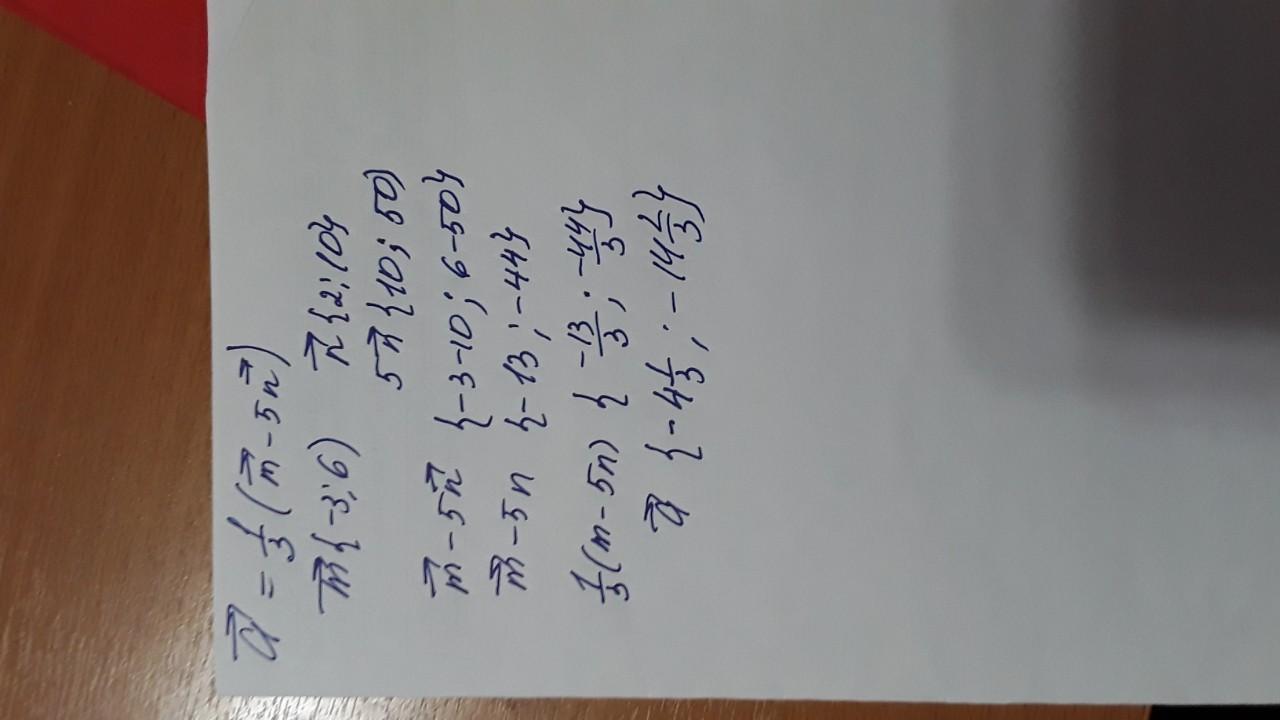 a⃗ = 1/3 (m⃗ - 5n⃗)
m⃗ {-3; 6) n⃗ {2; 10}
5n⃗ {10; 50)
m⃗ - 5n⃗ {-3-10; 6-50}
m⃗ - 5n {-13; -44}
1/3 (m - 5n) {-13/3; -44/3}
a⃗ {-4 1/3; -14 2/3}